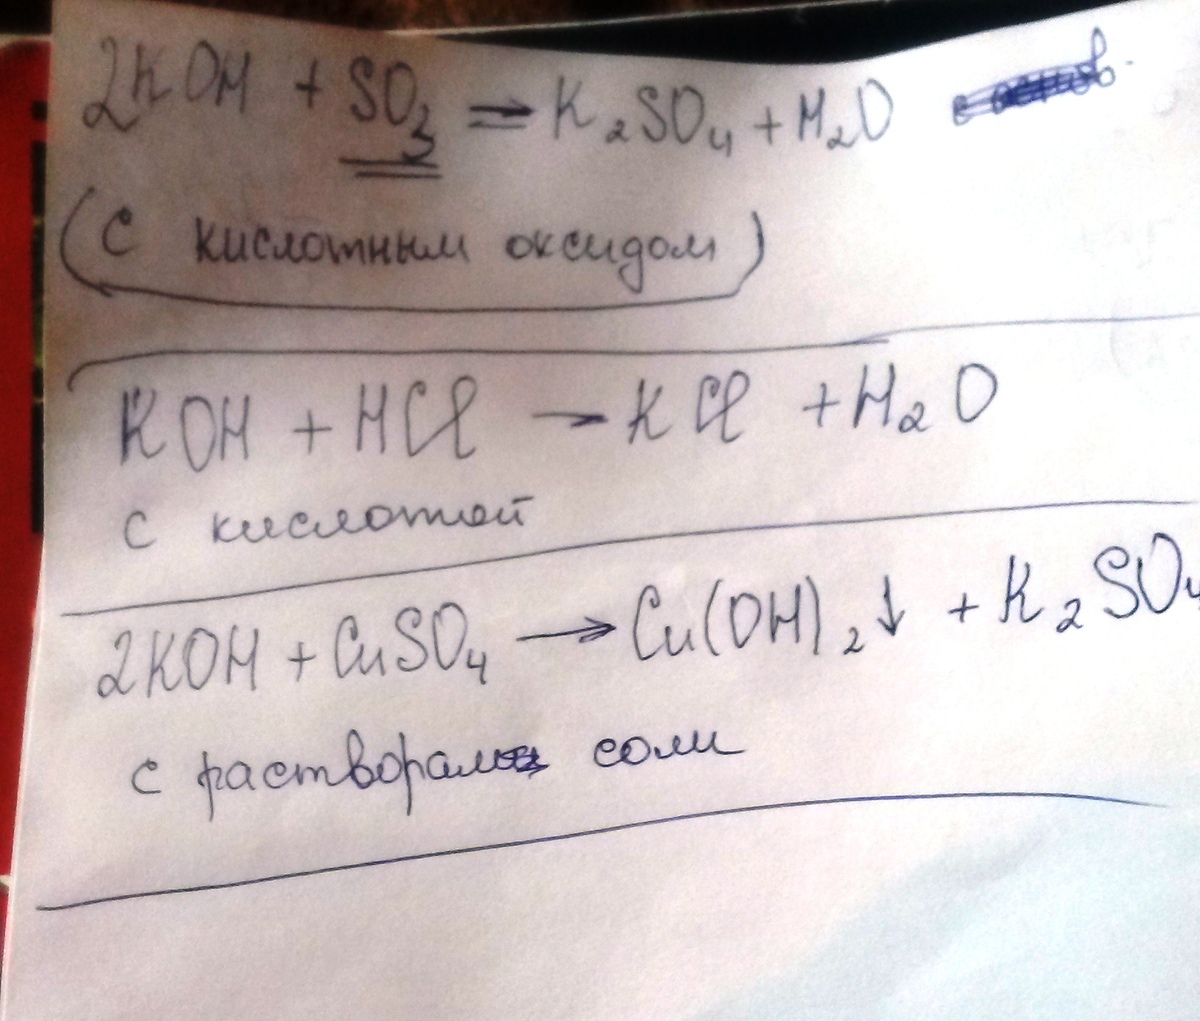 2KOH + SO₃ → K₂SO₄ + H₂O
(с кислотным оксидом)
KOH + HCl → KCl + H₂O
с кислотой
2KOH + CuSO₄ → Cu(OH)₂↓ + K₂SO₄
с раствором соли